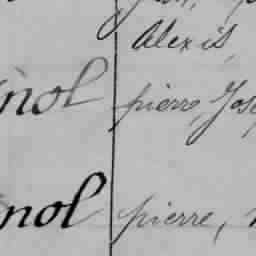 Alexis,
nol pierre, Jos
nol pierre,